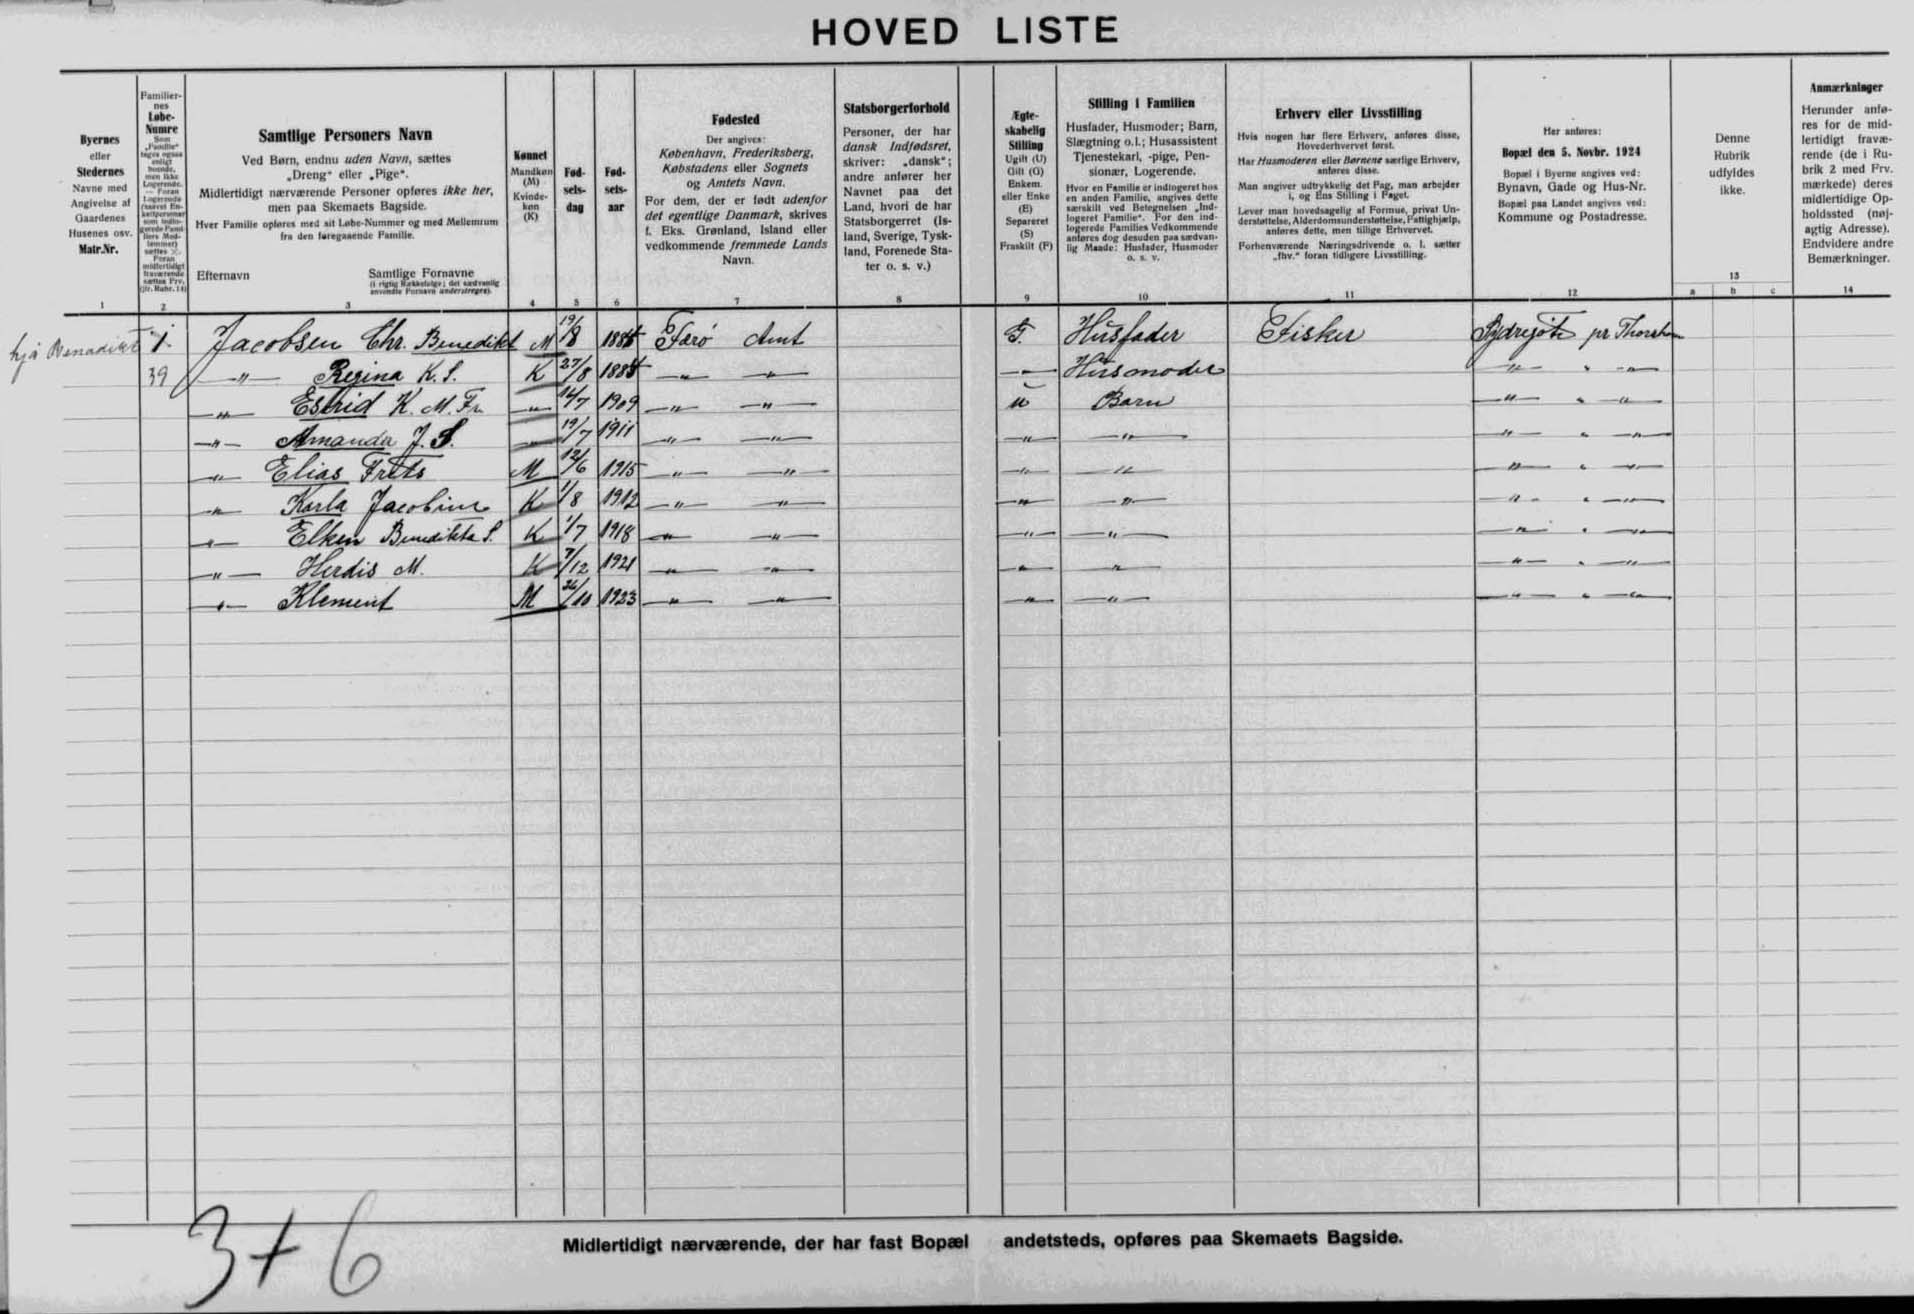 HOVED LISTE
Byernes
eller
Stedernes
Navne med
Angivelse af
Gaardenes
Husenes osv.
Matr.Nr.
1
Familier-
nes
Løbe-
Numre
Som
„Familie"
tages ogsaa
enligt
boende,
men ikke
Logerende.
— Foran
Logerende
sættes ×.
Foran
midlertidigt
fraværende
sættes Frv.
(jfr. Rubr. 14)
2
Samtlige Personers Navn
Ved Børn, endnu uden Navn, sættes
„Dreng" eller „Pige".
Midlertidigt nærværende Personer opføres ikke her,
men paa Skemaets Bagside.
Hver Familie opføres med sit Løbe-Nummer og med Mellemrum
fra den foregaaende Familie.
Efternavn
Samtlige Fornavne
(i rigtig Rækkefølge; det sædvanlig
anvendte Fornavn understreges).
3
Kønnet
Mandkøn
(M)
Kvinde-
køn
(K)
4
Fød-
sels-
dag
5
Fød-
sels-
aar
6
Fødested
Der angives:
København, Frederiksberg,
Købstadens eller Sognets
og Amtets Navn.
For dem, der er født udenfor
det egentlige Danmark, skrives
f. Eks. Grønland, Island eller
vedkommende fremmede Lands
Navn.
7
Statsborgerforhold
Personer, der har
dansk Indfødsret,
skriver: „dansk";
andre anfører her
Navnet paa det
Land, hvori de har
Statsborgerret (Is-
land, Sverige, Tysk-
land, Forenede Sta-
ter o. s. v.)
8
Ægte-
skabelig
Stilling
Ugift (U)
Gift (G)
Enkem.
eller Enke
(E)
Separeret
(S)
Fraskilt (F)
9
Stilling i Familien
Husfader, Husmoder; Barn,
Slægtning o.l.; Husassistent
Tjenestekarl, -pige, Pen-
sionær, Logerende.
Hvor en Familie er indlogeret hos
en anden Familie, angives dette
særskilt ved Betegnelsen „Ind-
logeret Familie". For den ind-
logerede Families Vedkommende
anføres dog desuden paa sædvan-
lig Maade: Husfader, Husmoder
o. s. v.
10
Erhverv eller Livsstilling
Hvis nogen har flere Erhverv, anføres disse,
Hovederhvervet først.
Har Husmoderen eller Børnene særlige Erhverv,
anføres disse.
Man angiver udtrykkelig det Fag, man arbejder
i, og Ens Stilling i Faget.
Lever man hovedsagelig af Formue, privat Un-
derstøttelse, Alderdomsunderstøttelse, Fattighjælp,
anføres dette, men tillige Erhvervet.
Forhenværende Næringsdrivende o. l. sætter
„fhv." foran tidligere Livsstilling.
11
Her anføres:
Bopæl den 5. Novbr. 1924
Bopæl i Byerne angives ved:
Bynavn, Gade og Hus-Nr.
Bopæl paa Landet angives ved:
Kommune og Postadresse.
12
Denne
Rubrik
udfyldes
ikke.
13
a b c
Anmærkninger
Herunder anfø-
res for de mid-
lertidigt fravæ-
rende (de i Ru-
brik 2 med Frv.
mærkede) deres
midlertidige Op-
holdssted (nøj-
agtig Adresse).
Endvidere andre
Bemærkninger.
14
hjá Benadikt 1. Jacobsen Chr. Benedikt M 19/8 Færø Amt G. Husfader Fisker Sydregöte pr Thorshavn
39 —"— Regina K. S. K 27/8 —"— —"— —"— Husmoder —"— " —"—
—"— Estrid K. M. Fr. —"— 1909 —"— —"— u Barn —"— " —"—
—"— Amanda J. S. —"— 19/7 1911 —"— —"— —"— —"— —"— " —"—
—"— Elias Frits M 12/6 1915 —"— —"— —"— —"— —"— " —"—
—"— Karla Jacobine K 1/8 1912 —"— —"— —"— —"— —"— " —"—
—"— Elken Benedikta S. K 1/7 1918 —"— —"— —"— —"— —"— " —"—
—"— Herdis M. K 7/12 1921 —"— —"— —"— —"— —"— " —"—
—"— Klement M 26/10 1923 —"— —"— —"— —"— —"— " —"—
3 + 6
Midlertidigt nærværende, der har fast Bopæl andetsteds, opføres paa Skemaets Bagside.